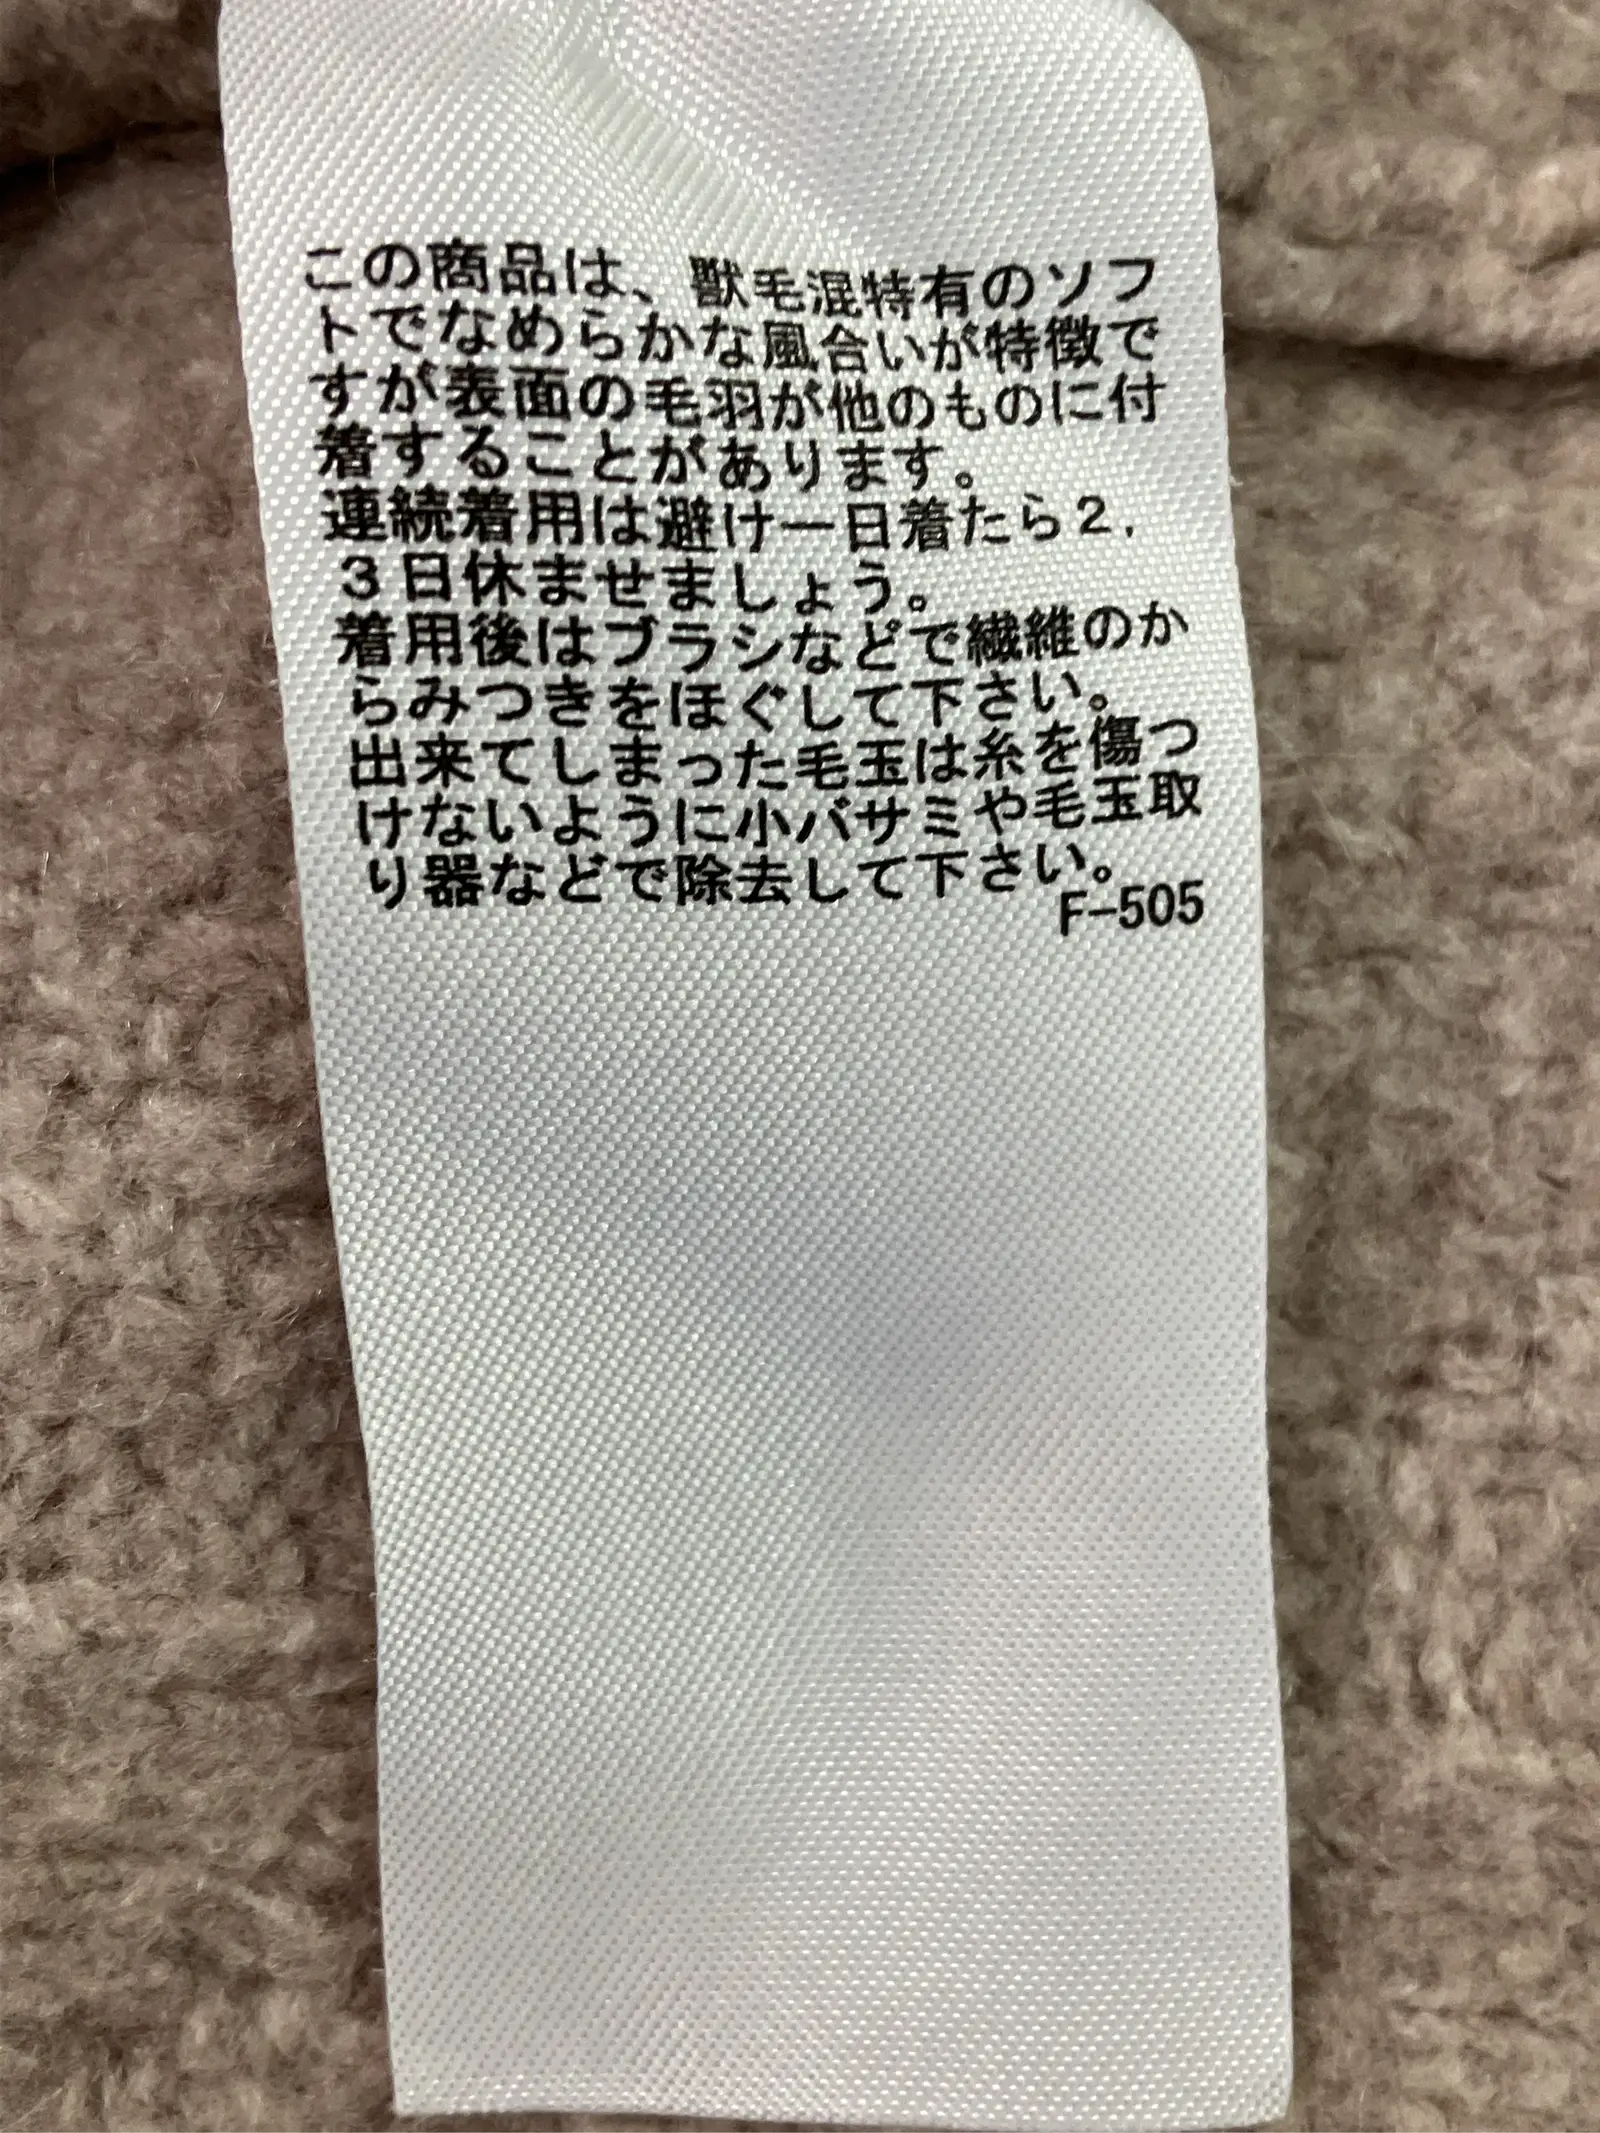 この商品は、獣毛混特有のソフ
トでなめらかな風合いが特徴で
すが表面の毛羽が他のものに付
着することがあります。
連続着用は避け一日着たら2,
3日休ませましょう。
着用後はブラシなどで繊維のか
らみつきをほぐして下さい。
出来てしまった毛玉は糸を傷つ
けないように小バサミや毛玉取
り器などで除去して下さい。
F-505